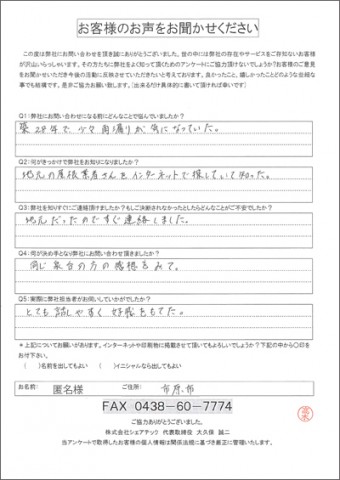 お客様のお声をお聞かせください
この度は弊社にお問い合わせを頂き誠にありがとうございました。世の中には弊社の存在やサービスをご存知ないお客様
が沢山いらっしゃいます。その方たちに弊社をよく知って頂くためのアンケートにご協力頂けないでしょうか？お客様のご意見
をお聞かせいただき今後の活動に反映させていただきたいと考えております。良かったこと、嬉しかったことどのような些細な
事でも結構です。是非ご協力お願い致します。（出来るだけ具体的に書いて頂ければ幸いです）
Q1:弊社にお問い合わせになる前にどんなことで悩んでいましたか？
築28年で、少々雨漏りが気になっていた。
Q2:何がきっかけで弊社をお知りになりましたか？
地元の屋根業者さんをインターネットで探していて知った。
Q3:弊社を知りすぐにご連絡頂けましたか？もしご決断されなかったとしたらどんなことがご不安でしたか？
地元だったのですぐ連絡しました。
Q4:何が決め手となり弊社にお問い合わせ頂きましたか？
同じ東台の方の感想をみて。
Q5:実際に弊社担当者がお伺いしていかがでしたか？
とても話しやすく好感をもてた。
＊上記についてお願いがあります。インターネットや印刷物に掲載させて頂いてもよろしいでしょうか？下記の中から〇印を
お付け下さい。
（　）名前を出してもよい　（　）イニシャルなら出してもよい
お名前:　匿名様　ご住所:　市原市
FAX 0438-60-7774
ご協力ありがとうございました。
株式会社シェアテック　代表取締役　大久保　誠二
当アンケートで取得したお客様の個人情報は関係法規に基づき厳正に管理いたします。